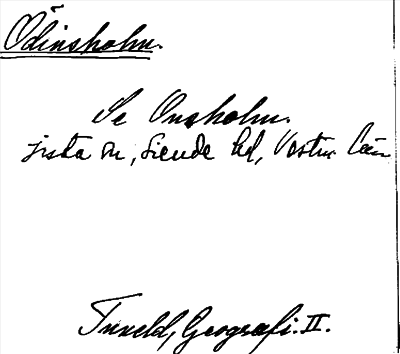 Odinsholm.
Se Onsholm.
sista on, Siende hd, Vestm. län
Tuneld, Geografi. II.